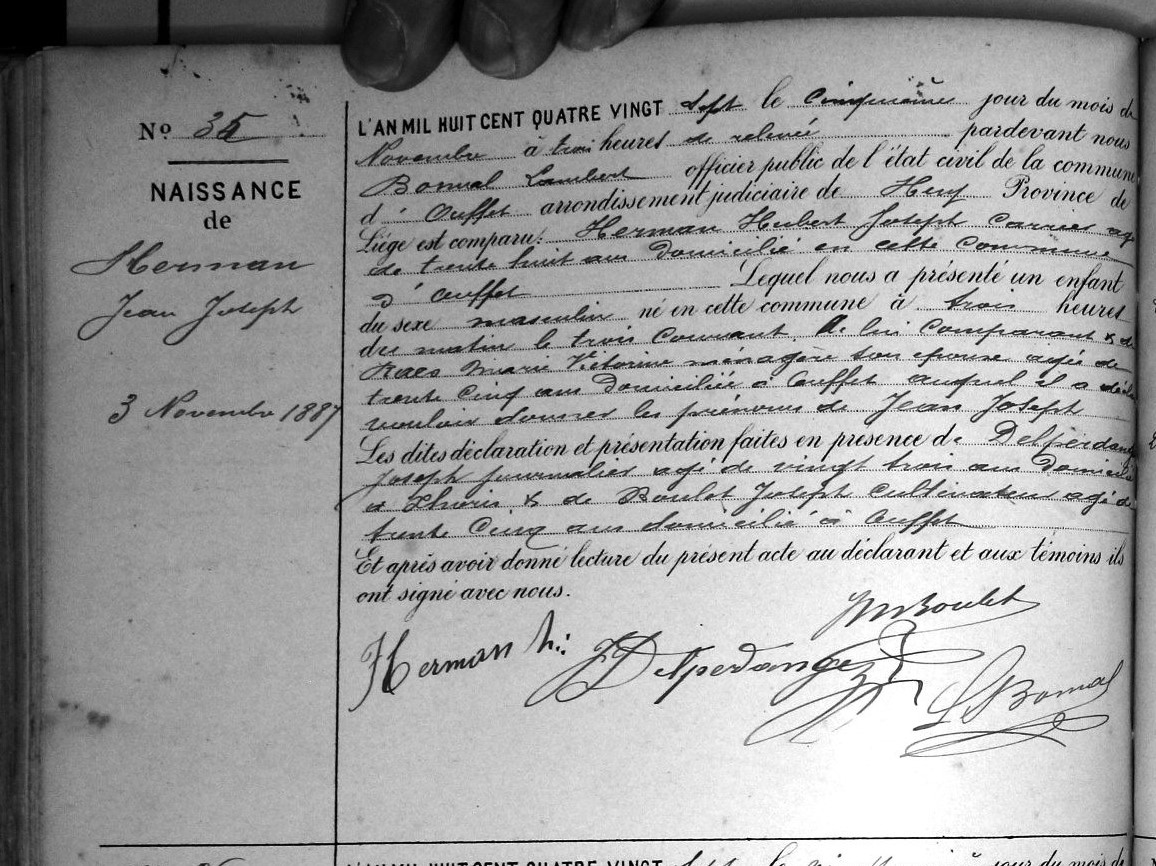 N° 35
NAISSANCE
de
Herman
Jean Joseph
3 Novembre 1887
L'AN MIL HUIT CENT QUATRE VINGT sept le cinquième jour du mois de
Novembre à trois heures de relevée pardevant nous
Bomal Lambert officier public de l'état civil de la commune
d'Ouffet arrondissement judiciaire de Huy Province de
Liége est comparu: Herman Hubert Joseph carrier agé
de trente huit ans domicilié en cette commune
d'Ouffet Lequel nous a présenté un enfant
du sexe masculin né en cette commune à trois heures
du matin le trois courant de lui comparant & de
Marie Victorine ménagère son épouse agée de
trente cinq ans domiciliée à Ouffet auquel il a déclaré
vouloir donner les prénoms de Jean Joseph
Les dites déclaration et présentation faites en présence de Delperdange
Joseph journalier agé de vingt trois ans domicilié
a & de Boulet Joseph cultivateur agé de
trente cinq ans domicilié à Ouffet
Et après avoir donné lecture du présent acte au déclarant et aux témoins ils
ont signé avec nous.
Boulet
Herman h.: J Delperdange
L Bomal
L'AN MIL HUIT CENT QUATRE VINGT sept le jour du mois de